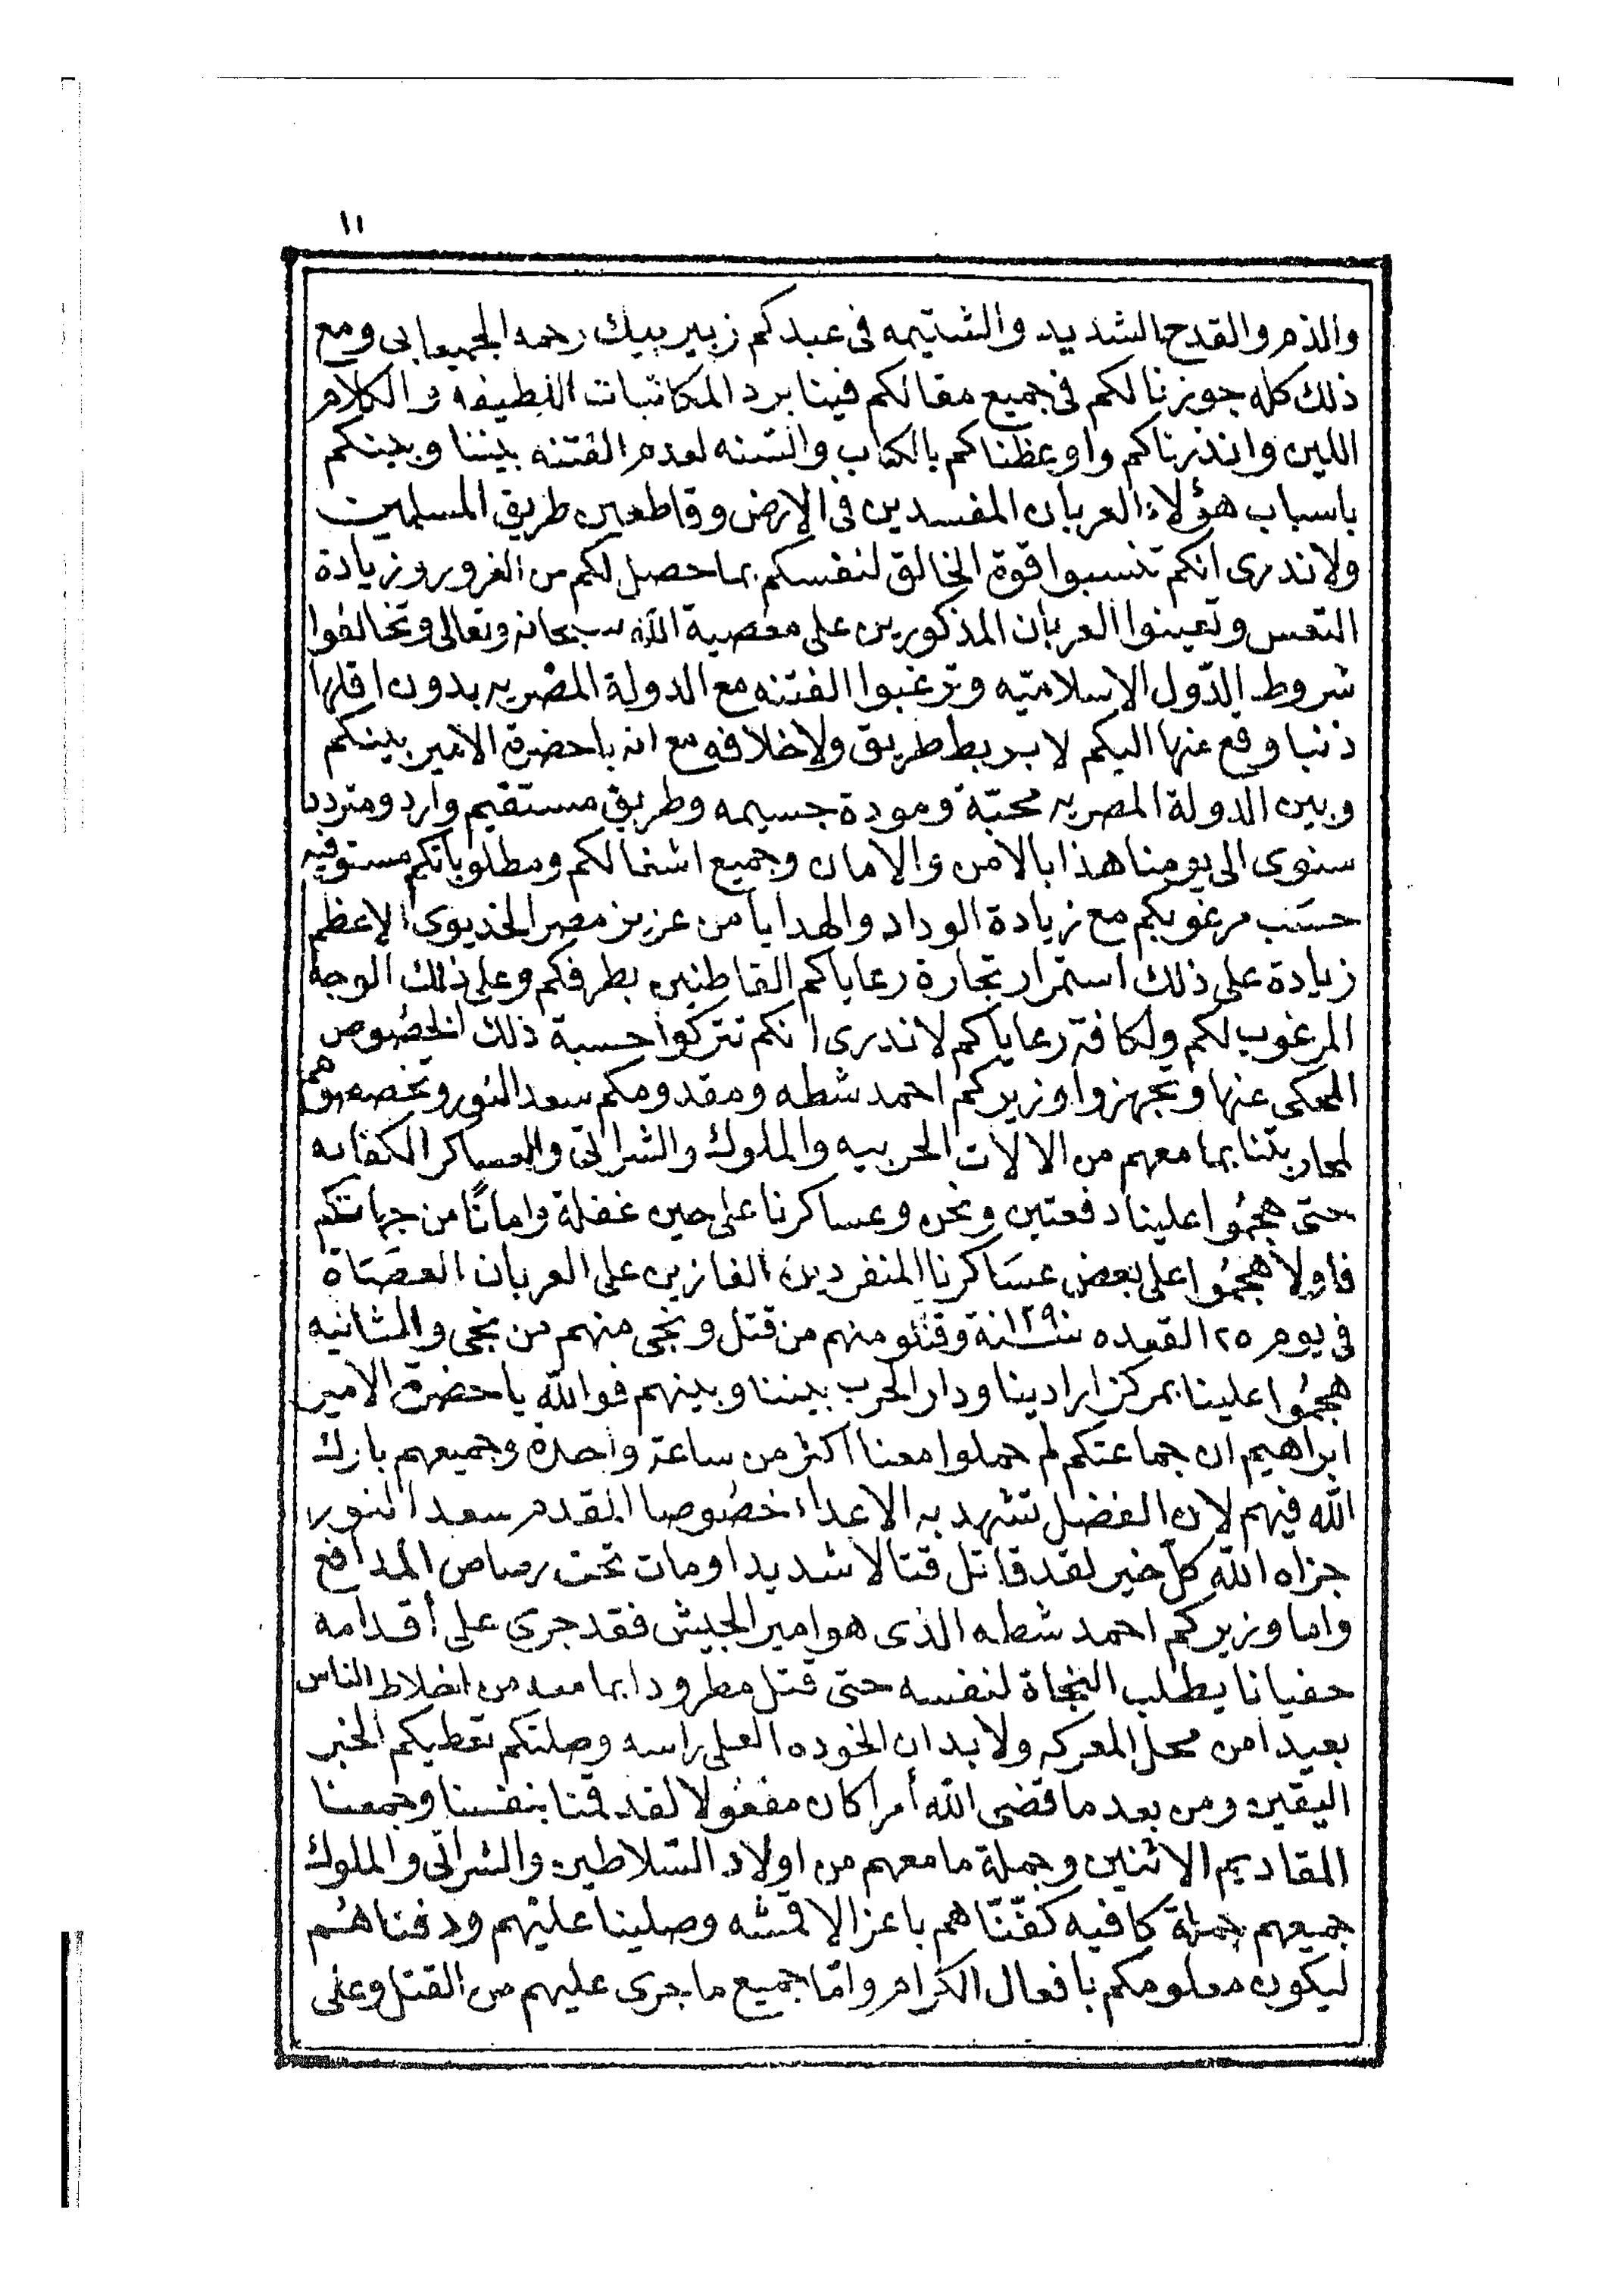 ١١
والذم والقدح الشديد والشتيمه فى عبدكم زبير بيك رحمه الجميعابى ومع
ذلك كله جوزنا لكم فى جميع مقالكم فينا برد المكاتبات اللطيفه والكلام
اللين وانذرناكم واوعظناكم بالكتاب والسنه لعدم الفتنه بيننا وبينكم
باسباب هؤلاء العربان المفسدين فى الارض وقاطعين طريق المسلمين
ولا ندرى انكم تنسبوا قوة الخالق لنفسكم بما حصل لكم من الغرور وزيادة
النفس وتعينوا العربان المذكورين على معصية الله سبحانه وتعالى وتخالفوا
شروط الدّول الاسلاميّه وترغبوا الفتنه مع الدولة المصريه بدون اقلها
ذنبا وقع عنها اليكم لا بربط طريق ولا خلافه مع انه يا حضرة الامير بينكم
وبين الدولة المصريه محبّة ومودة جسيمه وطريق مستقيم وارد ومتردد
سنوى الى يومنا هذا بالامن والامان وجميع اشغالكم ومطلوباتكم مستوفيه
حسَب مرغوبكم مع زيادة الوداد والهدايا من عزيز مصر الخديوى الاعظم
زيادة على ذلك استمرار تجارة رعاياكم القاطنين بطرفكم وعلى ذلك الوجه
المرغوب لكم ولكافة رعاياكم لا ندرى انكم تتركوا حسبة ذلك الخصُوص
المحكى عنها وتجهزوا وزيركم احمد شطه ومقدومكم سعد النور وتخصصوهم
لمحاربتنا بما معهم من الالات الحربيه والملوك والشراتى والعساكر الكفايه
حتى هجمُوا علينا دفعتين ونحن وعساكرنا على حين غفلة وامانًا من جهاتكم
فاولا هجمُوا على بعض عسَاكرنا المنفردين الغازين على العربان العصَاة
فى يوم ٢٥ القعده سنة ١٢٩٠ وقتلو منهم من قتل ونجى منهم من نجى والثانيه
هجمُوا علينا بمركز ارادينا ودار الحرب بيننا وبينهم فوالله يا حضرة الامير
ابراهيم ان جماعتكم لم حملوا معنا اكثر من ساعة واحدة وجميعهم بارك
الله فيهم لان الفضل تشهد به الاعداء خصُوصا المقدم سعد النور
جزاه الله كلّ خير لقد قاتل قتالا شديدا ومات تحت رصاص المدافع
واما وزيركم احمد شطه الذى هو امير الجيش فقد جرى على أقدامه
حفيانا يطلب النجاة لنفسه حتى قتل مطرودا بما معه من اخلاط الناس
بعيدا من محل المعركه ولا بد ان الخوده العلى راسه وصلتكم تعطيكم الخبر
اليقين ومن بعد ما قضى الله أمرا كان مفعولا لقد قمنا بنفسنا وجمعنا
المقاديم الاثنين وجملة ما معهم من اولاد السّلاطين والشراتى والملوك
جميعهم جملة كافيه كفّنّاهم باعز الاقمشه وصلينا عليهم ودفناهُم
ليكون معلومكم بافعال الكرام وامّا جميع ما جرى عليهم من القتل وعلى